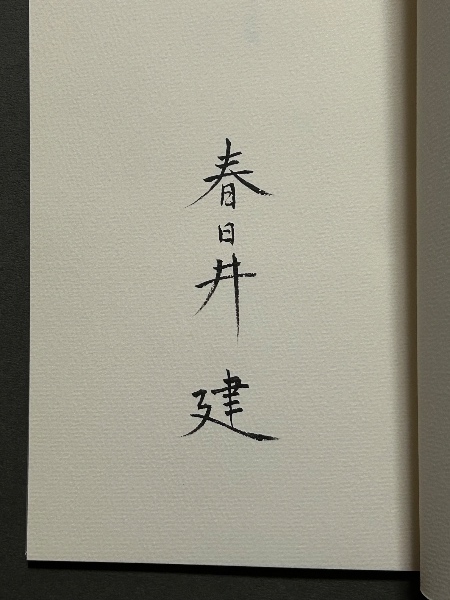 春日井建